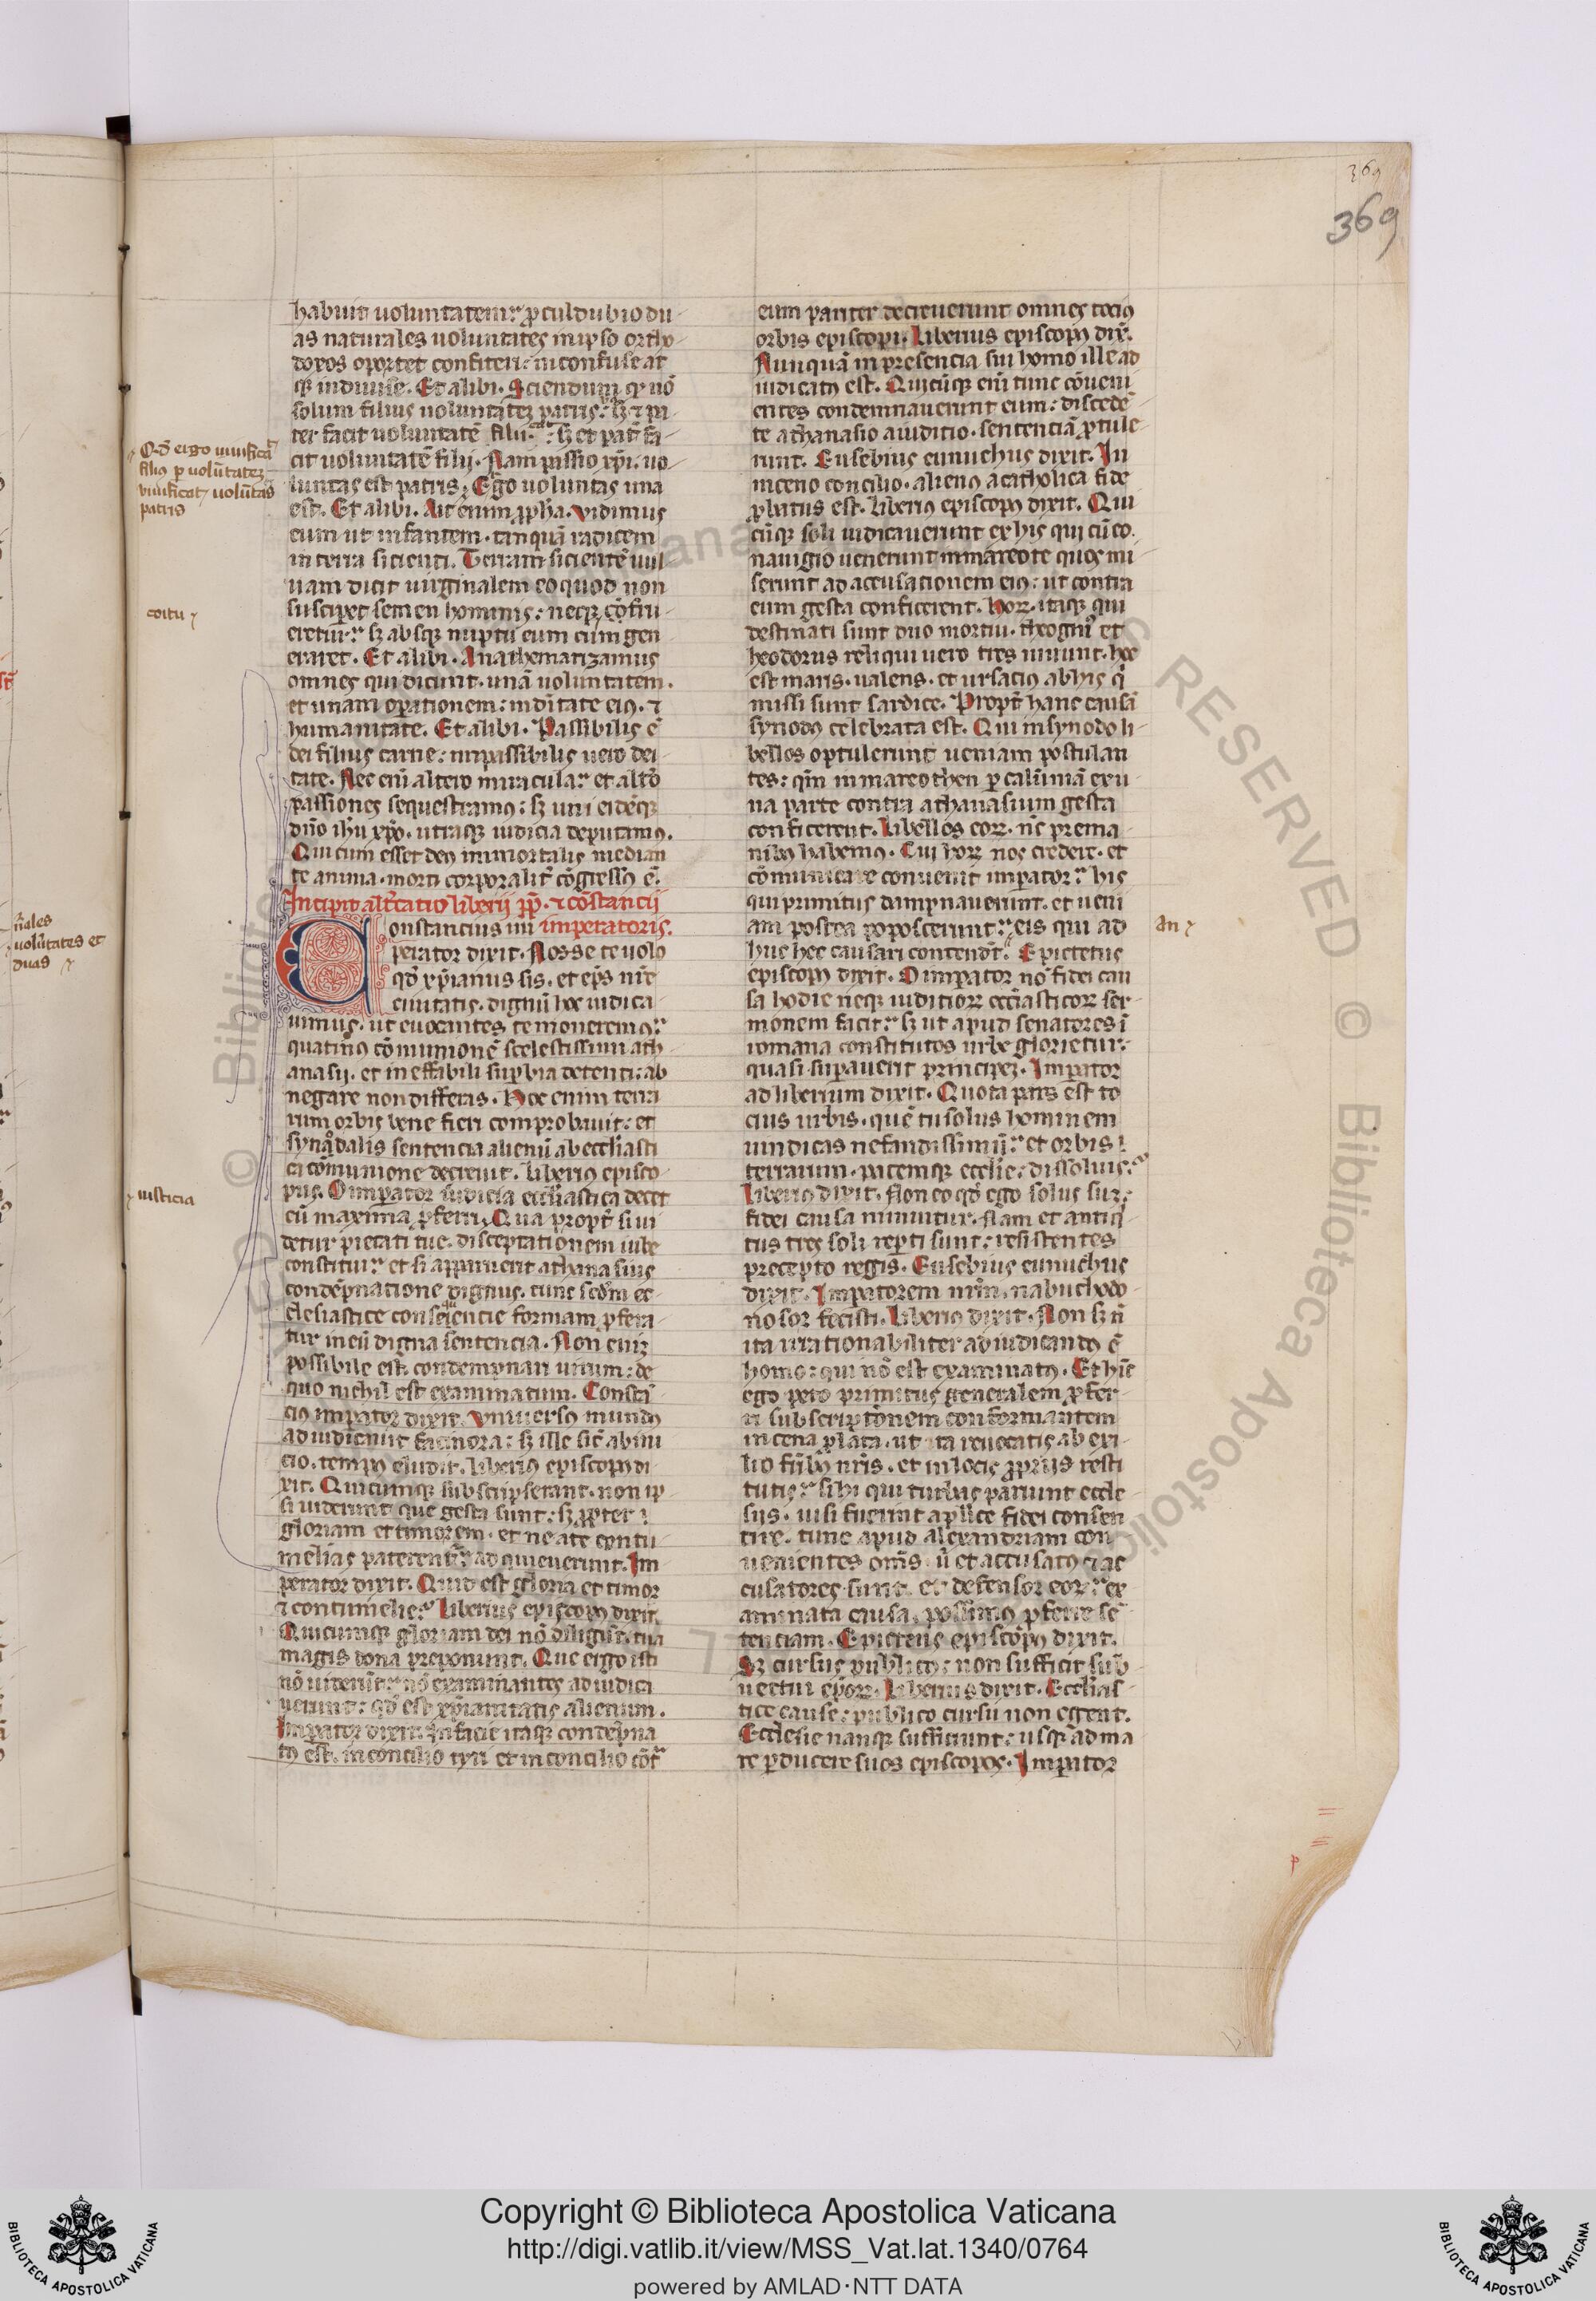 369
369
habuit uoluntatem: ꝓculdubio du-
as naturales uoluntates in ipso ortho-
doxos oportet confiteri: inconfuse at
qꝫ indiuise. Et alibi. Sciendum qꝫ nō
solum filius uoluntatēꝫ patris: sꝫ ⁊ pa-
ter facit uoluntatē filii. sꝫ et pat̄ fa-
cit uoluntatē filij. Nam passio xp̄i. uo-
luntas est patris. Ego uoluntas una
est. Et alibi. Ait enim ꝓpha. Vidimus
eum ut infantem. tanquā radicem
in terra sicienti. Terram sicientē uul-
uam dicit uirginalem eo quod non
susciperet semen hominis: neqꝫ cōstru-
eretur: sꝫ absqꝫ nuptu eum cum gen-
eraret. Et alibi. Anathematizamus
omnes qui dicunt. unā uoluntatem.
et unam oꝑationem: in dītate eiꝰ. ⁊
humanitate. Et alibi. Passibilis ē
dei filius carne: inpassibilis uero dei-
tate. Nec enī altero miracula: et alt̄o
passiones sequestramꝰ: sꝫ uni eidēqꝫ
dn̄o ihū xp̄o. utraqꝫ iudicia deputamꝰ.
Qui cum esset deꝰ immortalis median
te anima. morti corporalit̄ cōgressꝰ ē.
Incipit alt̄catio liberij pp̄. ⁊ cōstancij
onstancius im imperatoris.
perator dixit. Nosse te uolo
qd̄ xp̄ianus sis. et ep̄s nr̄e
ciuitatis. dignū hoc iudica-
uimus. ut euocantes te moneremꝰ:
quatinꝰ cōmunionē scelestissimi ath-
anasij. et ineffabili suꝑbia detenti: ab
negare non differas. Hoc enim terra
rum orbis bene fieri comprobauit: et
synodalis sentencia alienū ab eccl̄iasti
ca cōmunione decreuit. Liberiꝰ episco-
pus. O imꝑator iudicia eccl̄iastica decet
cū maxima ꝓferri. Qua propt̄ si ui
detur pietati tue. disceptationem iube
constitui: et si apparuerit athanasius
condēpnatione dignus. tunc scd̄m ec-
clesiastice consequencie formam ꝓfera-
tur in eū digna sentencia. Non eniꝫ
possibile est. condempnari uirum: de
quo nichil est examinatum. Constā-
ciꝰ imꝑator dixit. Vniuersꝰ mundꝰ
adiudicauit facinora: sꝫ ille sic̄ ab ini
cio. tempꝰ eludit. Liberiꝰ episcopꝰ di-
xit. Quicumqꝫ subscripserant. non ip-
si uiderunt que gesta sunt: sꝫ ꝓpter
gloriam et timorem. et ne a te contu-
melias paterent̄: adquieuerunt. Im
perator dixit. Quid est gloria et timor
⁊ contumelie: Liberius episcopꝰ dixit.
Quicumqꝫ gloriam dei nō diligūt. tua
magis dona preponunt. Que ergo isti
nō uiderūt: nō examinantes adiudica
uerunt: qd̄ est xp̄ianitatis alienum.
Imꝑator dixit. In facie itaqꝫ condēpna
tꝰ est. in concilio tyri et in concilio cōt̄
eum pariter decreuerunt omnes tociꝰ
orbis episcopi. Liberius episcopꝰ dix̄.
Nunquā in presencia sui homo ille ad
iudicatꝰ est. Quicūqꝫ enī tunc cōueni-
entes condemnauerunt eum: discedē-
te athanasio a iuditio. sentenciā ꝓtule-
runt. Eusebius eunuchus dixit. In
niceno concilio. alienꝰ a catholica fide
ꝓbatus est. Liberiꝰ episcopꝰ dixit. Qui
cūqꝫ soli iudicauerunt ex his qui cū eo.
nauigio uenerunt in mareote quos mi-
serunt ad accusationem eiꝰ: ut contra
eum gesta conficerent. Hoꝝ. itaqꝫ qui
destinati sunt duo mortui. theogniꝰ et
theodorus reliqui uero tres uiuunt. hoc
est maris. ualens. et ursaciꝰ ab his q̄
missi sunt sardice. Propt̄ hanc causā
synodꝰ celebrata est. Qui in synodo li-
bellos optulerunt ueniam postulan
tes: qm̄ in mareothen ꝑ calūniā ex u-
na parte contra athanasium gesta
conficerent. Libellos eoꝝ. nc̄ pre ma-
nibꝰ habemꝰ. Cui hoꝝ nos credere. et
cōmunicare conuenit imꝑator: his
qui primitus dampnauerunt. et ueni
am postea poposcerunt: eis qui ad
huc hec causari contendūt. Epictetus
episcopꝰ dixit. O imꝑator nō fidei cau
sa hodie neqꝫ iuditioꝝ eccl̄asticoꝝ ser-
monem facit: sꝫ ut apud senatores ī
romana constitutos urbe glorietur:
quasi suꝑauerit principeꝫ. Imꝑator
ad liberium dixit. Quota pars est to
cius urbis. quē tu solus hominem
uindicas nefandissimū: et orbis
terrarum. pacemqꝫ eccl̄ie: dissoluis:
Liberiꝰ dixit. Non eo qd̄ ego solus suꝫ:
fidei causa minuitur. Nam et antiq̄-
tus tres soli repti sunt: resistentes
precepto regis. Eusebius eunuchus
dixit. Imꝑatorem nr̄m. nabuchodo-
nosor fecisti. Liberiꝰ dixit. Non sꝫ n̄
ita irrationabiliter adiudicandꝰ ē
homo: qui nō est examinatꝰ. Et hīc
ego peto primitus generalem ꝓfer-
ri subscriptōnem confirmantem
in cena ꝓlata. ut ita reuocatis ab exi-
lio fr̄ibꝰ nr̄is. et in locis ꝓpriis resti
tutis: sibi qui turbas pariunt eccle-
siis. uisi fuerint aplice fidei consen-
tire. tunc apud alexandriam con-
uenientes om̄s. u̇ et accusatꝰ ⁊ ac
cusatores sunt. et defensor eoꝝ: ex
aminata causa. possimꝰ ꝓferre sē-
tenciam. Epictetus episcopꝰ dixit.
Sꝫ cursus publicꝰ: non sufficit sub-
uectui ep̄oꝝ. Liberius dixit. Eccl̄ias-
tice cause: publico cursu non egent.
Ecclesie nanqꝫ sufficiunt: usqꝫ ad ma
re ꝑducere suos episcopos. Imꝑator
Qd̄ ergo uiuificat
filiꝰ ꝑ volūtateꝫ
viuificat volūtas
patris
coitu
n̄ales
volūtates et
duas
iusticia
an
Copyright © Biblioteca Apostolica Vaticana
http://digi.vatlib.it/view/MSS_Vat.lat.1340/0764
powered by AMLAD·NTT DATA
BIBLIOTECA APOSTOLICA VATICANA
BIBLIOTECA APOSTOLICA VATICANA